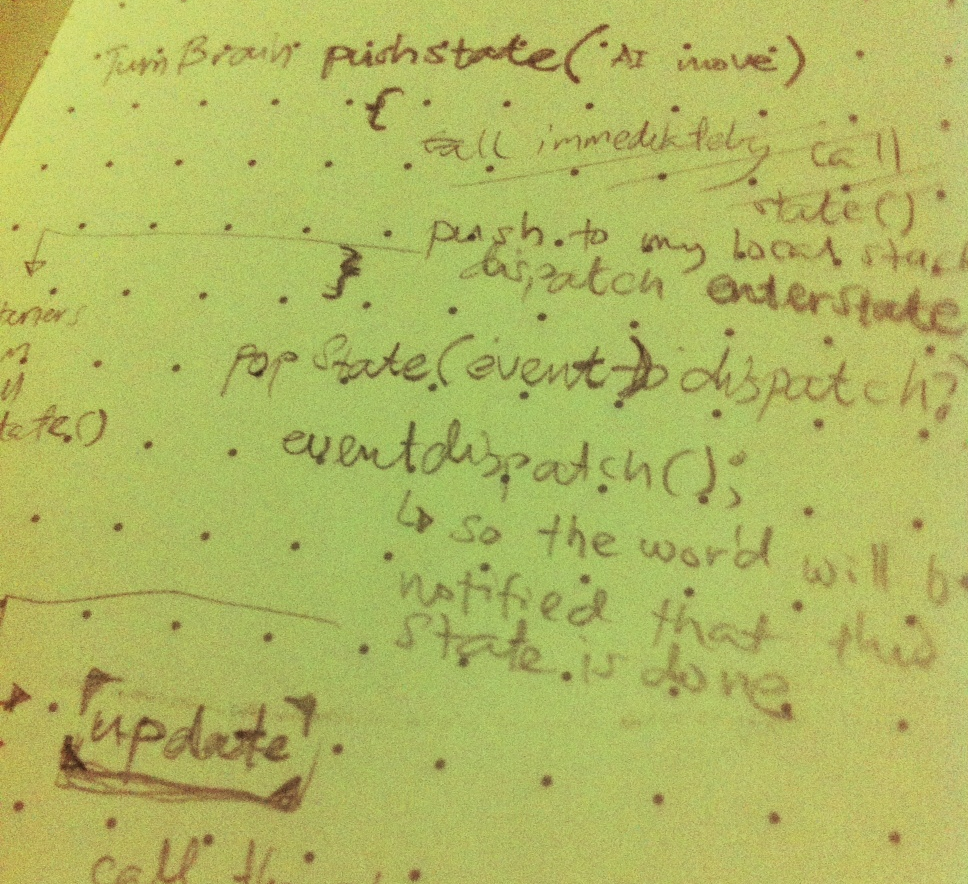 Turn Brain pushstate('AI move')
{
call immediately call
state()
push to my local stack
dispatch enterstate
}
popState(event) dispatch?
tate()
eventdispatch();
↳ so the word will be
notified that this
state is done
"update"
call th